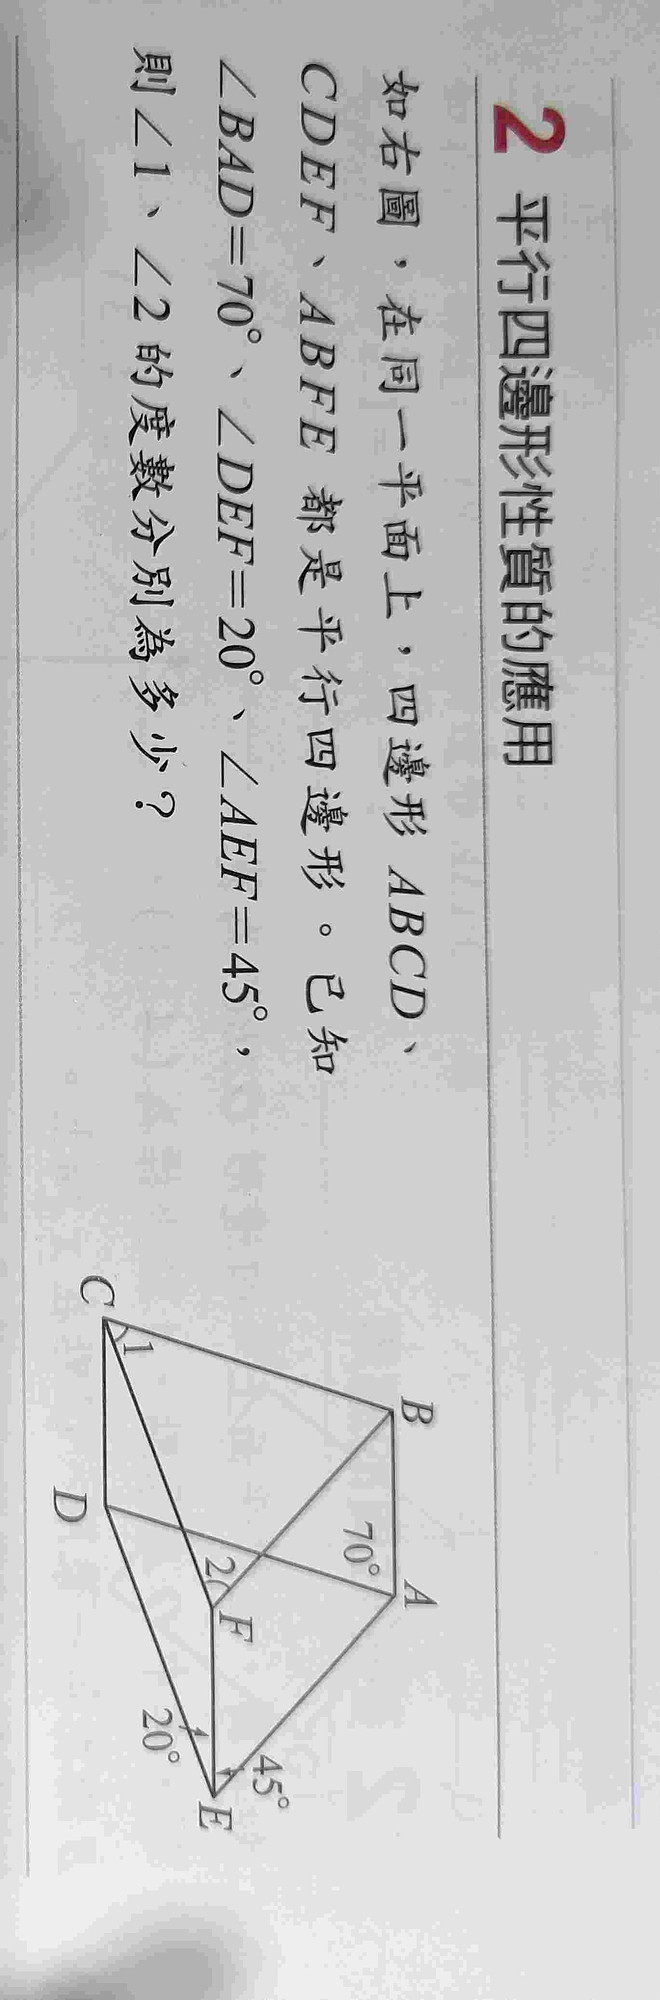 2 平行四邊形性質的應用
如右圖，在同一平面上，四邊形 ABCD、
CDEF、ABFE 都是平行四邊形。已知
∠BAD=70°、∠DEF=20°、∠AEF=45°，
則∠1、∠2 的度數分別為多少？
B
A
70°
C
1
2
F
45°
D
20°
E